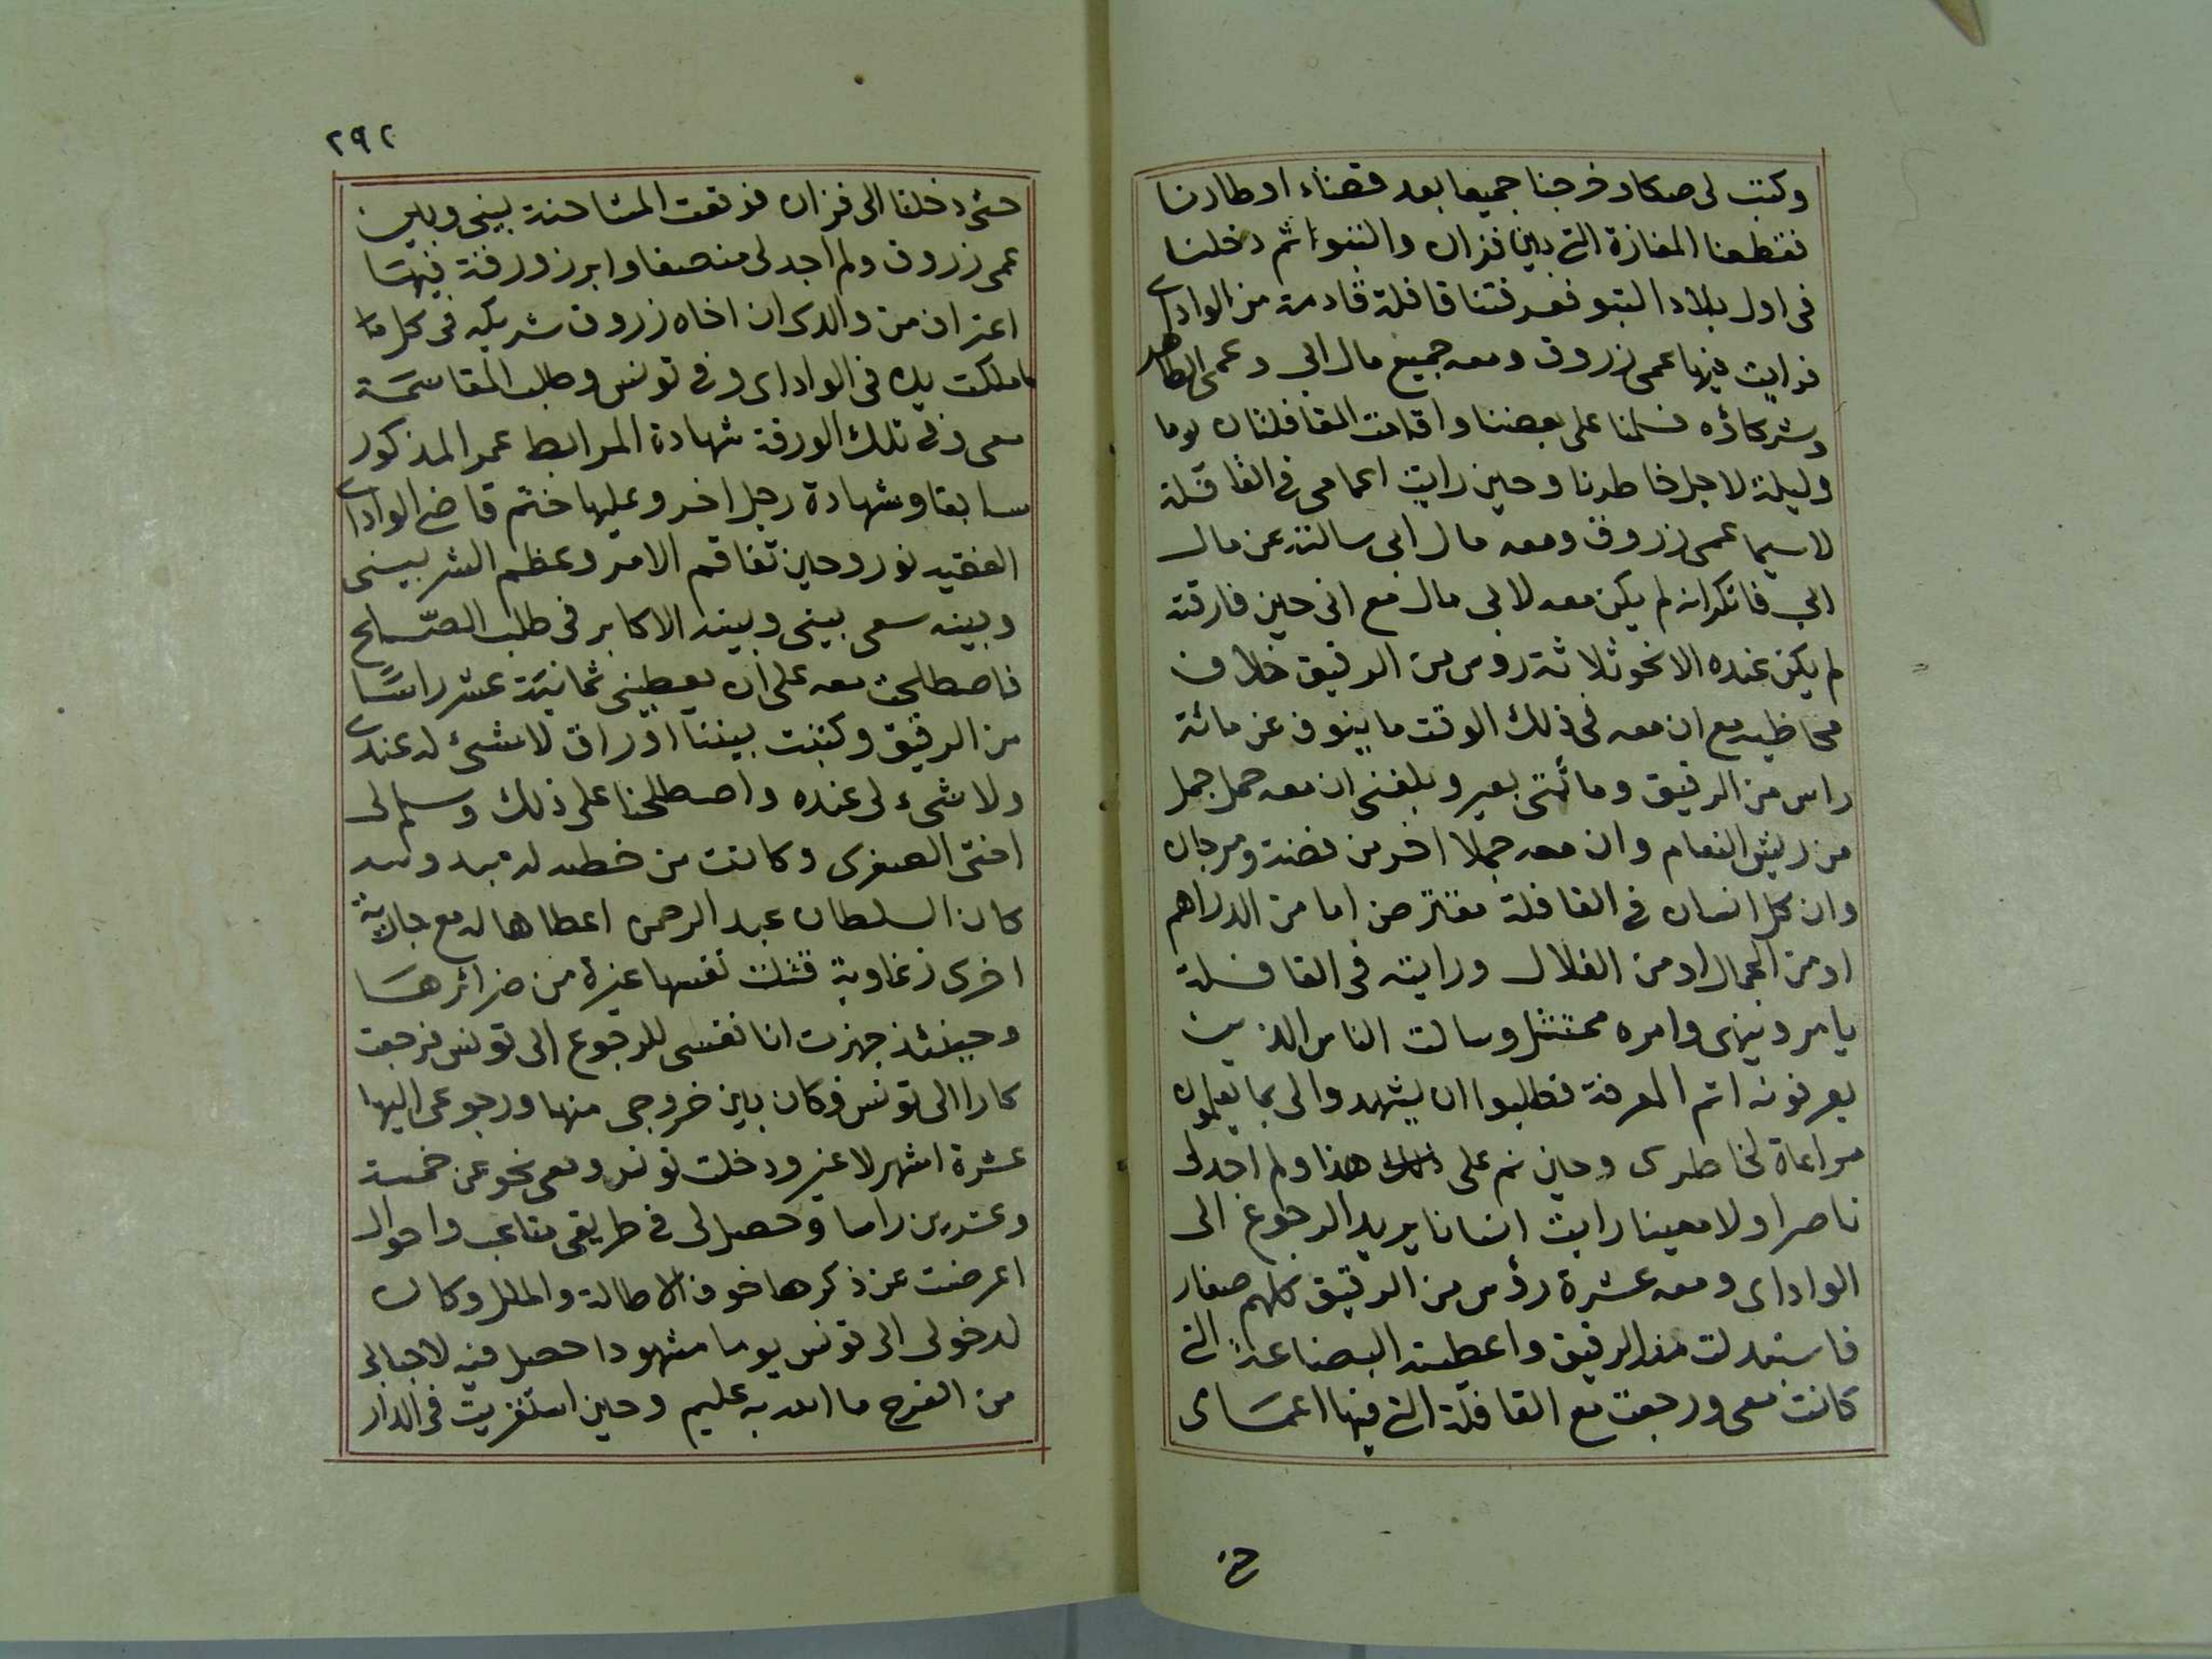 وكتب لى صكا وخرجنا جميعا بعد قضاء اوطارنا
فقطعنا المفازة التى بين فزان والتبوا ثم دخلنا
فى اول بلاد التبو فعرفتنا قافلة قادمة من الواداى
فرايت فيها عمى زروق ومعه جميع مال ابى وعمى الطاهر
وشركاؤه فسلمنا على بعضنا واقامت القافلتان يوما
وليلة لاجل خاطرنا وحين رايت اعمامى فى القافلة
لاسيما عمى زروق ومعه مال ابى سالته عن مال
ابى فانكر انه لم يكن معه لابى مال مع انى حين فارقته
لم يكن عنده الا نحو ثلاثة روس من الرقيق خلاف
محاظيه مع ان معه فى ذلك الوقت ما ينوف عن مائة
راس من الرقيق ومائتى بعير وبلغنى ان معه حمل جمل
من ريش النعام وان معه جملا اخر من فضة ومرجان
وان كل انسان فى القافلة مقترض اما من الدراهم
او من الجمال او من الغلال ورايته فى القافلة
يامر وينهى وامره ممتثل وسالت الناس الذين
يعرفونه اتم المعرفة فطلبوا ان يشهدوا لى بما يعلمون
مراعاة لخاطرى وحين تم على ذلك هذا ولم اجد لى
ناصرا ولا معينا رايت انسانا يريد الرجوع الى
الواداى ومعه عشرة رؤس من الرقيق كلهم صغار
فاستبدلت منه الرقيق واعطيته البضاعة التى
كانت معى ورجعت مع القافلة التى فيها اعماى
حتى
٢٩٢
حتى دخلنا الى فزان فوقعت المشاحنة بينى وبين
عمى زروق ولم اجد لى منصفا وابرز ورقة فيها
اعتراف من والدى ان اخاه زروق شريكه فى كل ما
ما ملكت يده فى الواداى وفى تونس وطلب المقاسمة
معى وفى تلك الورقة شهادة المرابط عمر المذكور
سابقا وشهادة رجل اخر وعليها ختم قاضى الواداى
الفقيه نور وحين تفاقم الامر وعظم الشر بينى
وبينه سعى بينى وبينه الاكابر فى طلب الصّلح
فاصطلحت معه على ان يعطينى ثمانية عشر راسًا
من الرقيق وكتبت بيننا اوراق لا شىء له عندى
ولا شىء لى عنده واصطلحنا على ذلك وسلم لى
اختى الصغرى وكانت من
كان السلطان عبد الرحمن اعطاها له مع جارية
اخرى زغاوية قتلت نفسها غيرة من ضرائرها
وحينئذ جهزت انا نفسى للرجوع الى تونس فرجعت
كارا الى تونس فكان بين خروجى منها ورجوعى اليها
عشرة اشهر لا غير ودخلت تونس ومعى نحو عن خمسة
وعشرين راسا وحصل لى فى طريقى متاعب واهوال
اعرضت عن ذكرها خوف الاطالة والملل وكان
لدخولى الى تونس يوما مشهودا حصل فيه لاحبابى
من الفرح ما الله به عليم وحين استقريت فى الدار